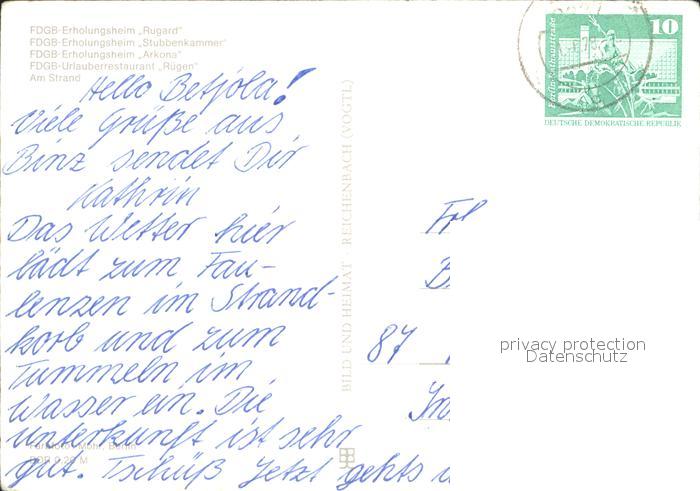 FDGB-Erholungsheim „Rugard"
FDGB-Erholungsheim „Stubbenkammer"
FDGB-Erholungsheim „Arkona"
FDGB-Urlauberrestaurant „Rügen"
Am Strand
10
Berlin, Rathausstraße
DEUTSCHE DEMOKRATISCHE REPUBLIK
Hello Betjöla!
Viele Grüße aus
Binz sendet Dir
Kathrin
Das Wetter hier
lädt zum Fau-
lenzen im Strand-
korb und zum
Tummeln im
Wasser ein. Die
Unterkunft ist sehr
gut. Tschüß Jetzt gehts
BILD UND HEIMAT REICHENBACH (VOGTL)
Frl
87
privacy protection
Datenschutz